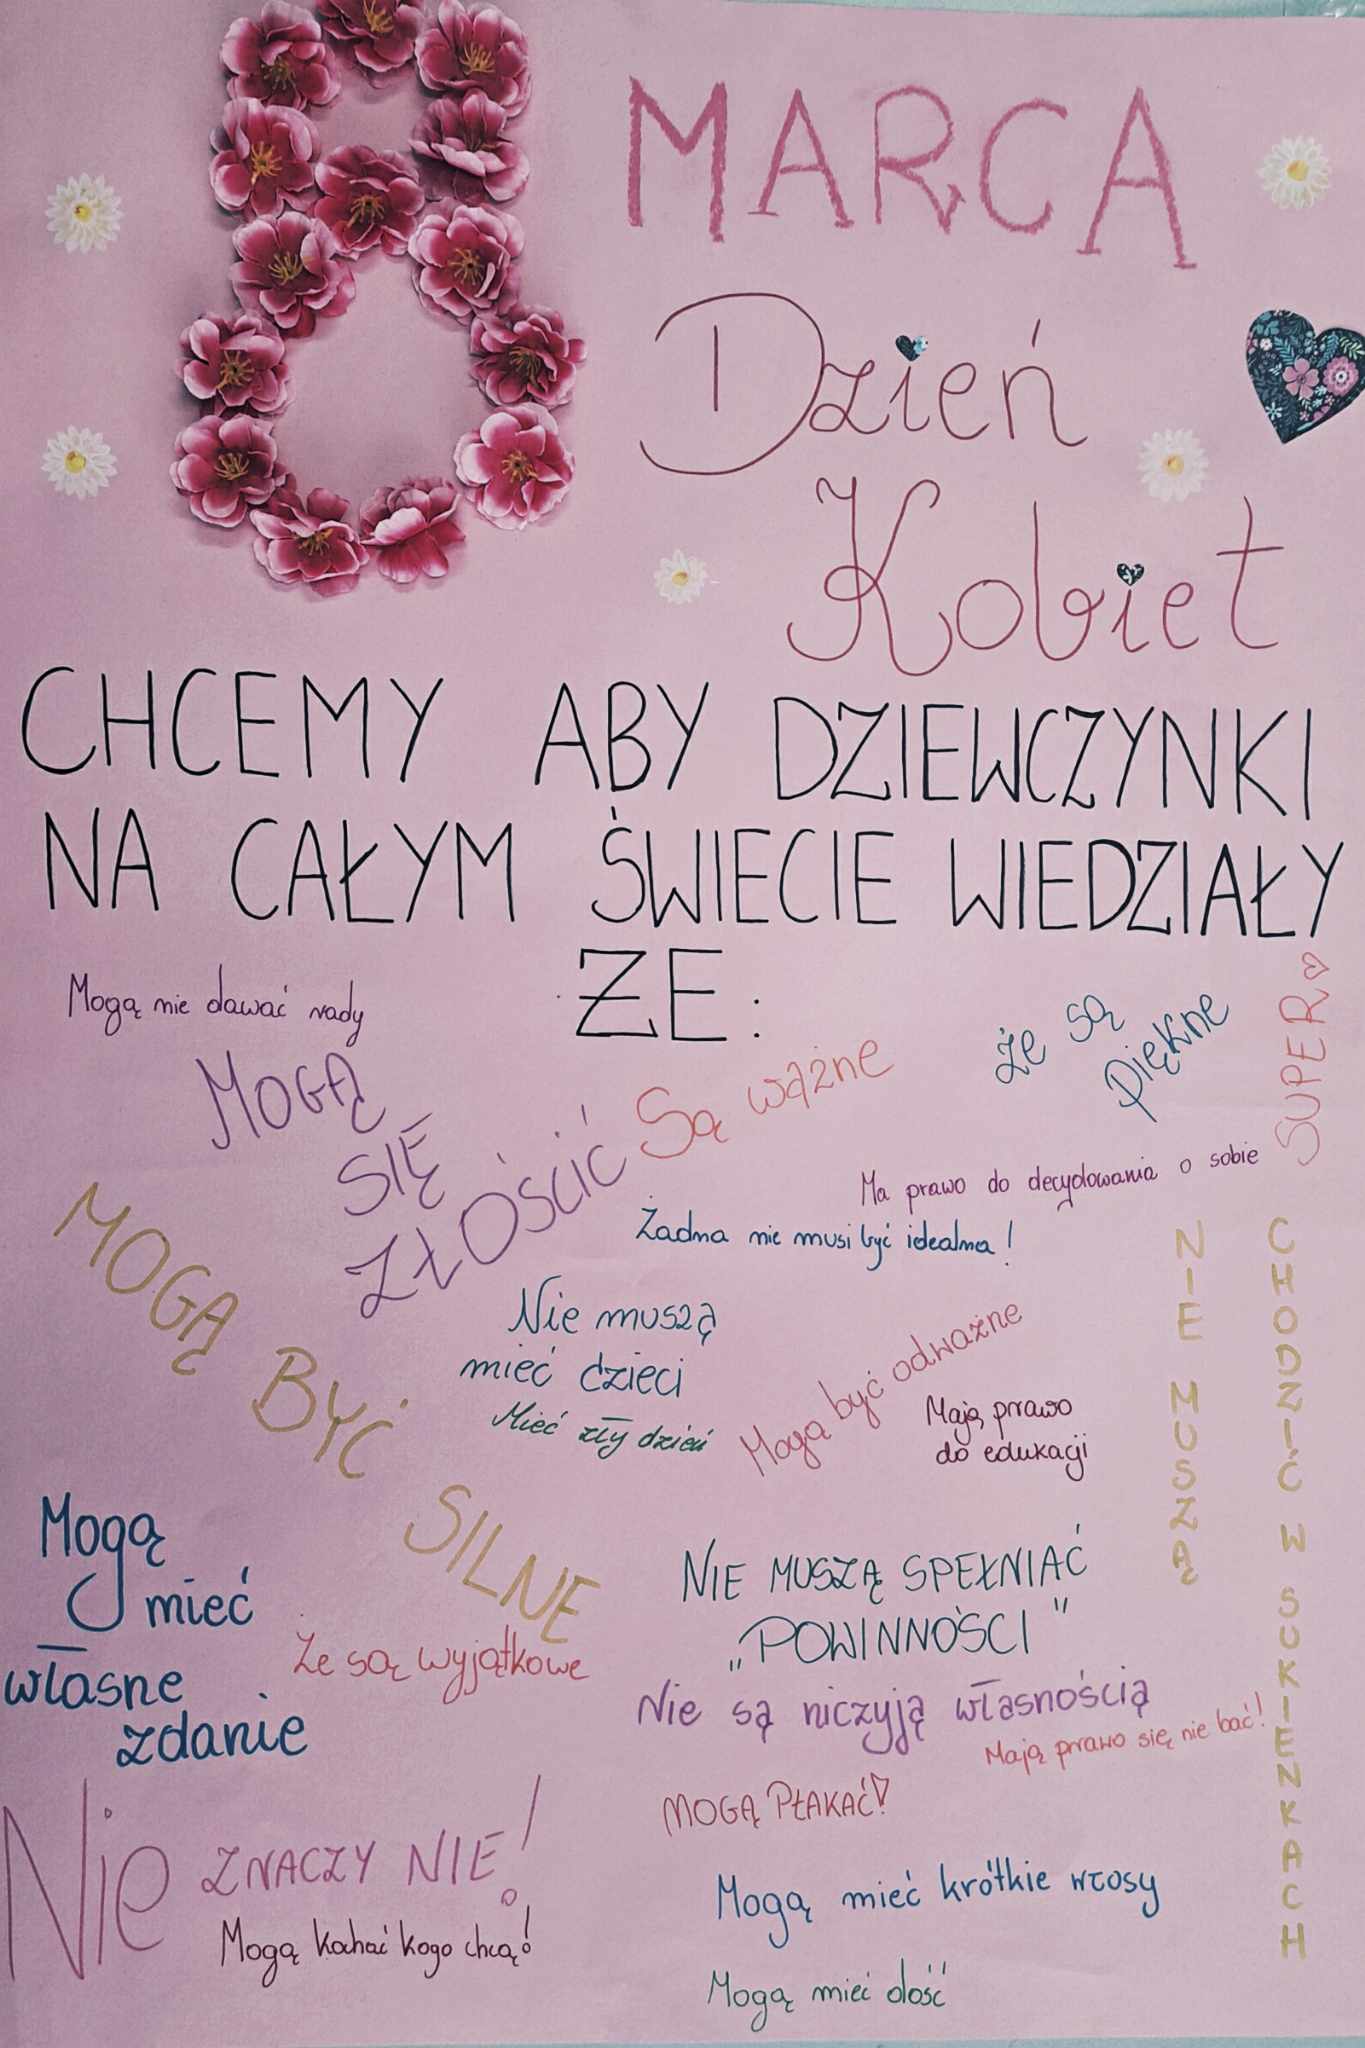 MARCA
Dzień
Kobiet
CHCEMY ABY DZIEWCZYNKI
NA CAŁYM ŚWIECIE WIEDZIAŁY
ŻE:
Mogą nie dawać rady
MOGĄ
SIĘ
ZŁOŚCIĆ
Są ważne
że są
piękne
SUPER
Ma prawo do decydowania o sobie
Żadna nie musi być idealna!
MOGĄ BYĆ SILNE
Nie muszą
mieć dzieci
Mieć zły dzień
Mogą być odważne
Mają prawo
do edukacji
NIE MUSZĄ
CHODZIĆ W SUKIENKACH
Mogą
mieć
własne
zdanie
Że są wyjątkowe
NIE MUSZĄ SPEŁNIAĆ
„POWINNOŚCI"
Nie są niczyją własnością
Mają prawo się nie bać!
MOGĄ PŁAKAĆ!
Nie ZNACZY NIE!
Mogą kochać kogo chcą!
Mogą mieć krótkie włosy
Mogą mieć dość